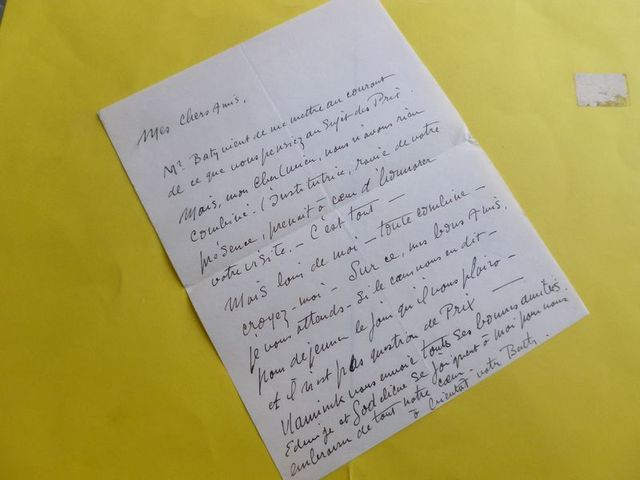 Mes chers Amis,
Mr. Baty vient de me mettre au courant
de ce que vous pensiez au sujet des Prix.
Mais, mon cher Lucien, nous n'avons rien
combiné. L'institutrice, ravie de votre
présence, prenait à cœur d'honorer
votre visite. - C'est tout -
Mais loin de moi - toute combine -
croyez-moi - Sur ce, mes bons Amis,
je vous attends - si le cœur vous en dit -
pour déjeuner le jour qu'il vous plaira -
et il n'est pas question de Prix -
Vlaminck vous envoie toutes ses bonnes amitiés
Edwige et Godelieve se joignent à moi pour vous
embrasser de tout notre cœur.
à bientôt votre Berthe